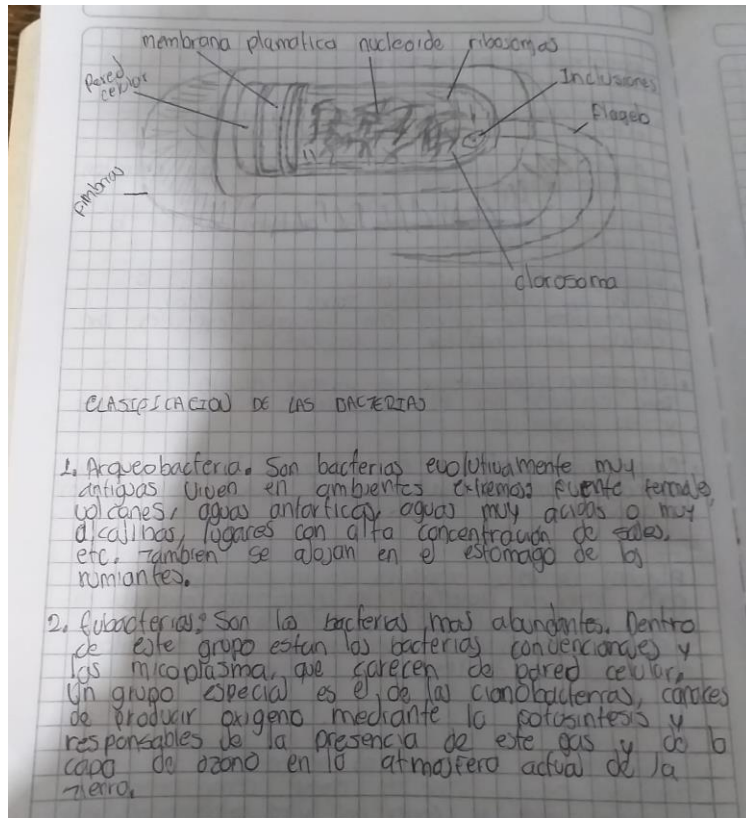 membrana plamatica nucleoide ribosomas
Pared
celular
Inclusiones
flagelo
fimbrias
clorosoma
CLASIFICACION DE LAS BACTERIAS
1. Arqueobacteria. Son bacterias evolutivamente muy
antiguas viven en ambientes extremos: fuente termale,
volcanes, aguas antarticas, aguas muy acidas o muy
alcalinas, lugares con alta concentración de sales,
etc. Tambien se alojan en el estomago de los
rumiantes.
2. Eubacterias: Son las bacterias mas abundantes. Dentro
de este grupo estan las bacterias convencionales y
las micoplasma, que carecen de pared celular,
Un grupo especial es el de las cianobacterias, capaces
de producir oxigeno mediante la fotosintesis y
responsables de la presencia de este gas y de la
capa de ozono en la atmosfera actual de la
tierra.